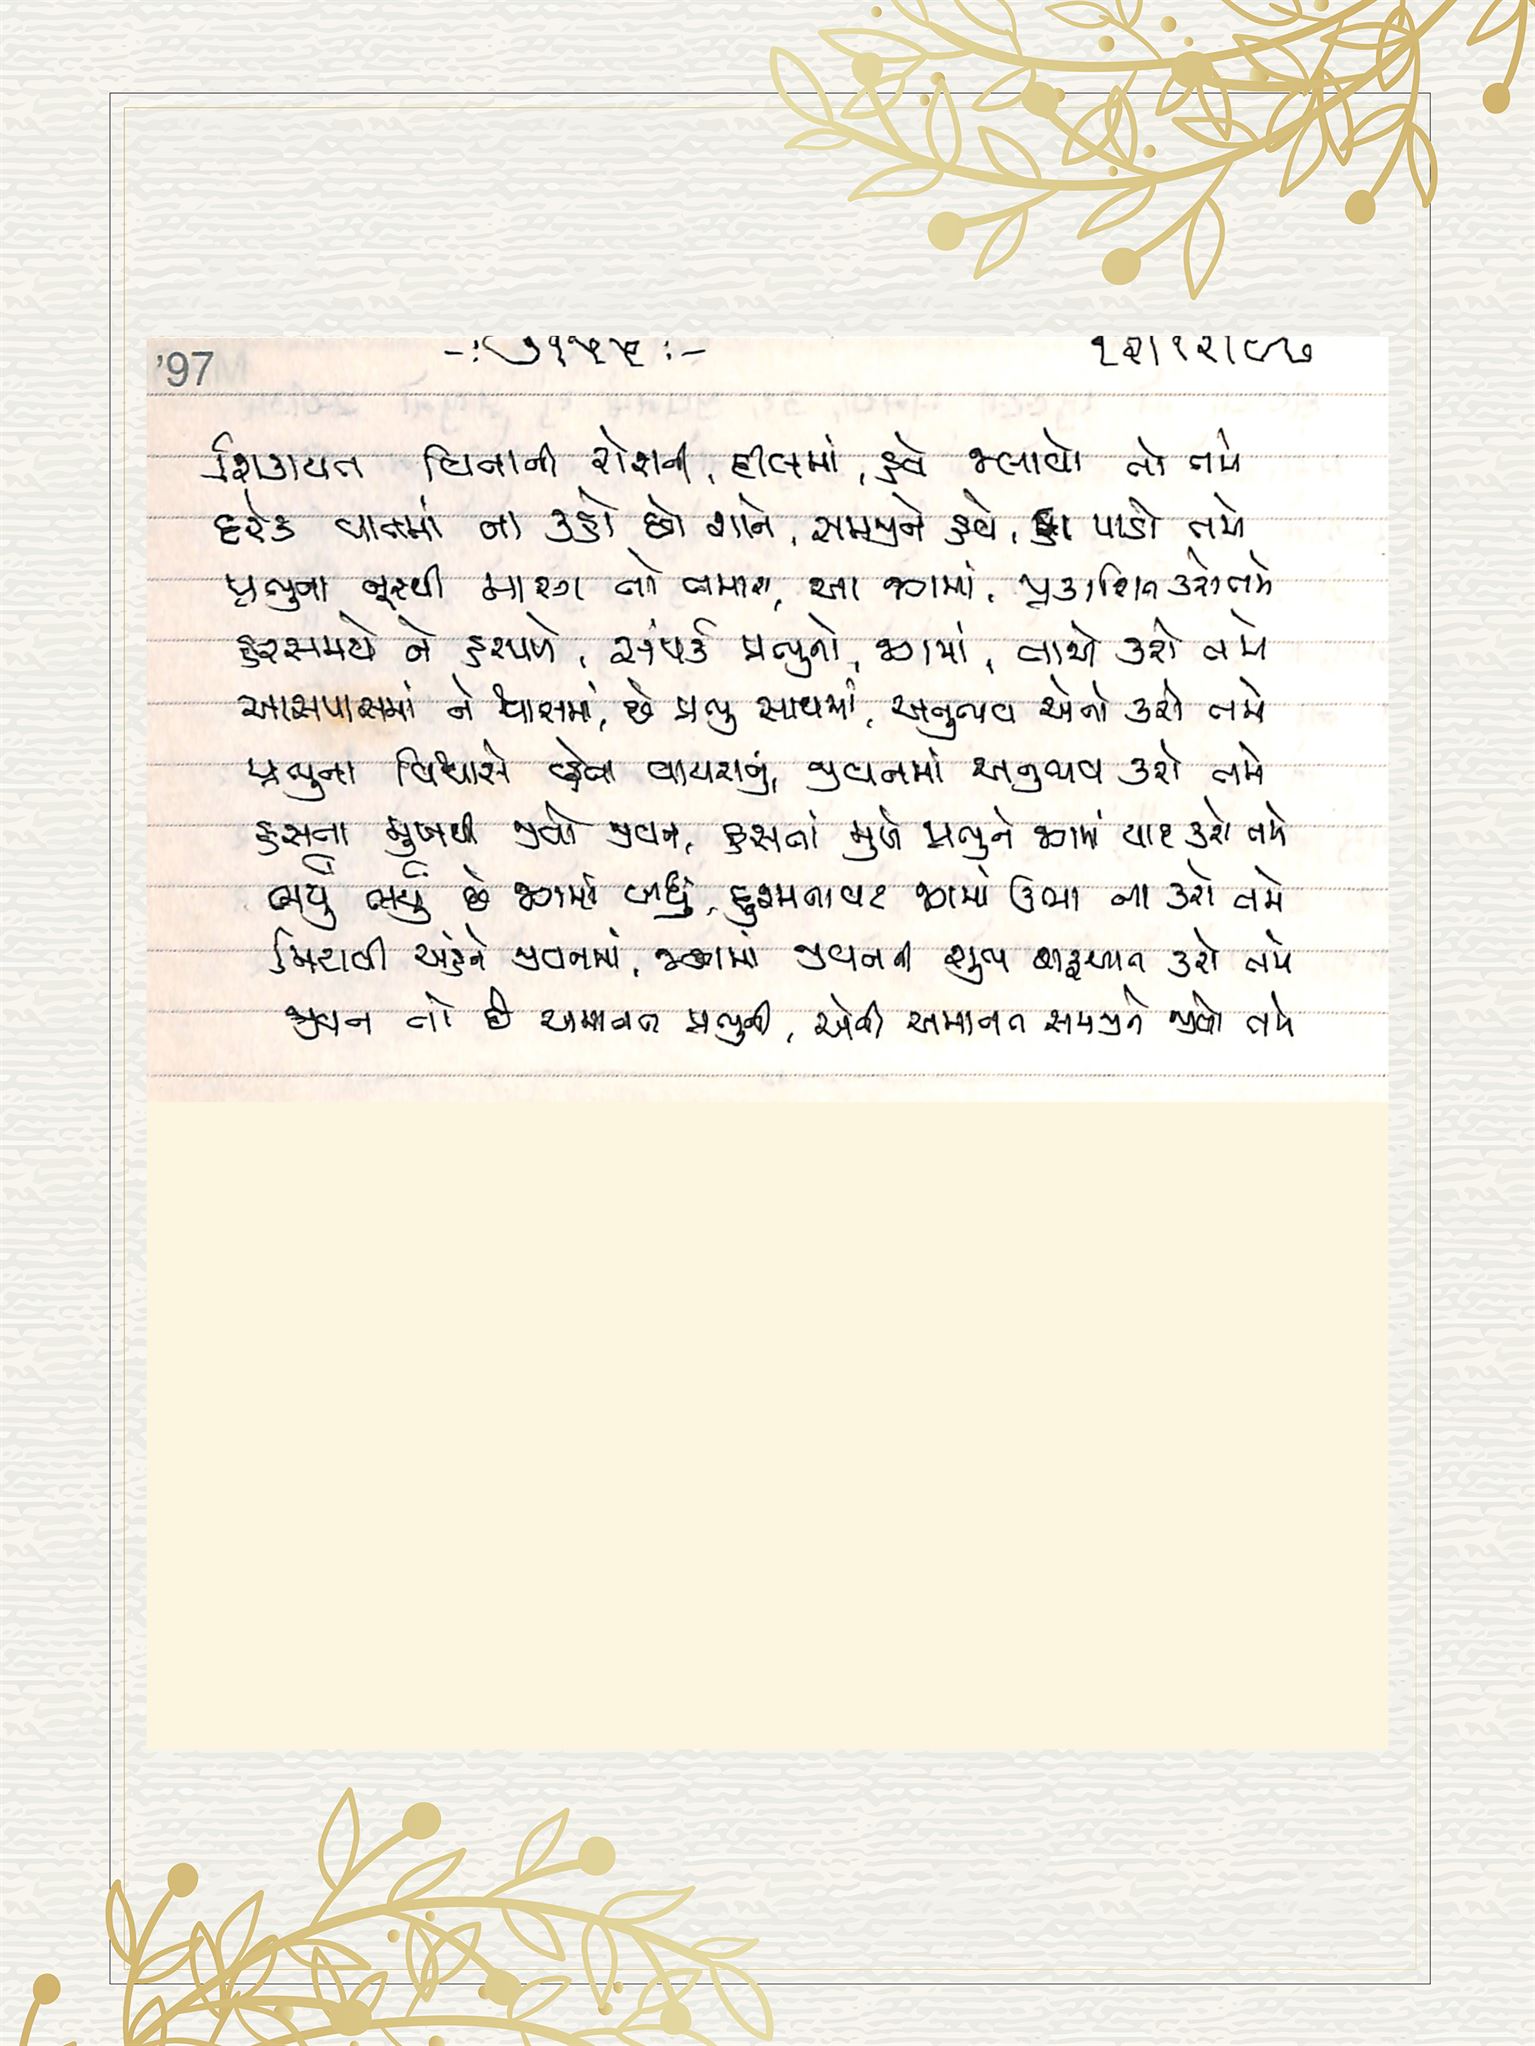 '97
-: ૭૧૫૫ :-
૧૨/૧૨/૯૭
શિકાયત વિનાની રોશની, દીલમાં, હવે જલાવો તો તમે
દરેક વાતમાં ના કહો છો શાને, સમજીને હવે, હા પાડો તમે
પ્રભુના નૂરથી મારગ તો તમારા, આ જગમાં, પ્રકાશિત કરો તમે
હરસમયે ને હરપળે, સંપર્ક પ્રભુનો, જગમાં, સાધો કરો તમે
આસપાસમાં ને શ્વાસમાં, છે પ્રભુ સાથમાં, અનુભવ એનો કરો તમે
પ્રભુના વિશ્વાસે વ્હેતા વાયરાનું, જીવનમાં અનુભવ કરો તમે
હસતા મુખથી જીવો જીવન, હસતાં મુખે પ્રભુને જગમાં યાદ કરો તમે
ભર્યું ભર્યું છે જગમાં બધું, દુશ્મનાવટ જગમાં ઉભા ના કરો તમે
મિટાવી અહંને જીવનમાં, જગમાં જીવનની શુભ શરૂઆત કરો તમે
જીવન તો છે અમાનત પ્રભુની, એવી અમાનત સમજીને જીવો તમે